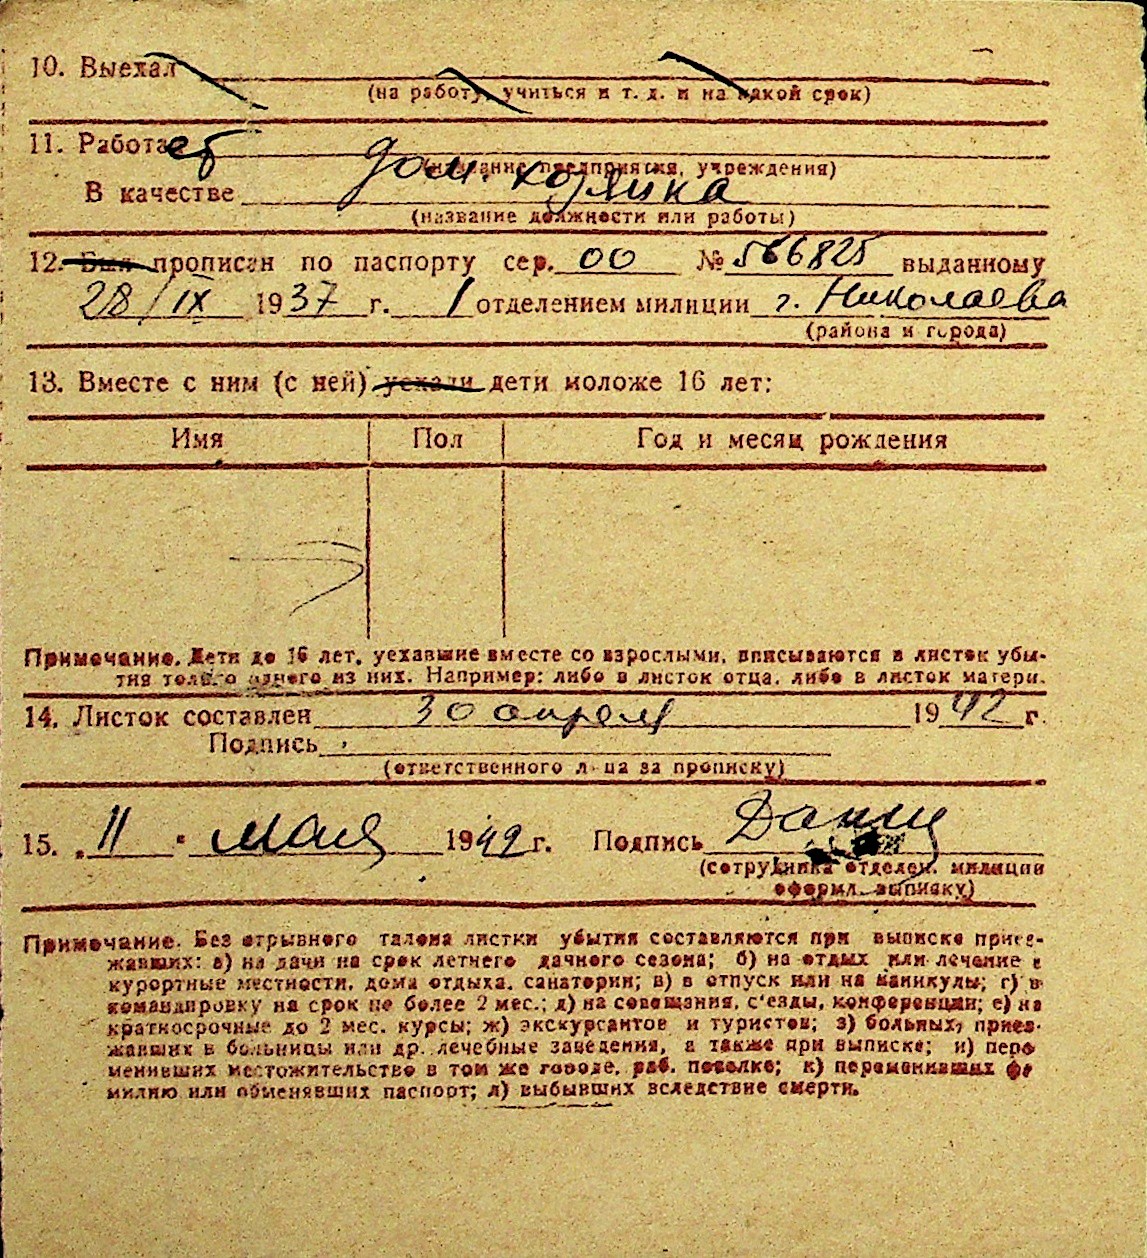 10. Выехал
(на работу, учиться и т. д. и на какой срок)
11. Работает
дом. хозяйка
(название предприятия, учреждения)
В качестве
(название должности или работы)
12. Был прописан по паспорту сер. 00 № 566825 выданному
28/IX 1937 г. 1 отделением милиции г. Николаева
(района и города)
13. Вместе с ним (с ней) уехали дети моложе 16 лет:
Имя Пол Год и месяц рождения
Примечание. Дети до 16 лет, уехавшие вместе со взрослыми, вписываются в листок убы-
тия только одного из них. Например: либо в листок отца, либо в листок матери.
14. Листок составлен 30 апреля 1942 г.
Подпись
(ответственного лица за прописку)
15. „11" мая 1942 г. Подпись
(сотрудника отделен. милиции
оформл. выписку)
Примечание. Без отрывного талона листки убытия составляются при выписке приез-
жавших: а) на дачи на срок летнего дачного сезона; б) на отдых или лечение в
курортные местности, дома отдыха, санатории; в) в отпуск или на каникулы; г) в
командировку на срок не более 2 мес.; д) на совещания, с'езды, конференции; е) на
краткосрочные до 2 мес. курсы; ж) экскурсантов и туристов; з) больных, приез-
жавших в больницы или др. лечебные заведения, а также при выписке; и) пере
менивших местожительство в том же городе, раб. поселке; к) переменивших фа
милию или обменявших паспорт; л) выбывших вследствие смерти.